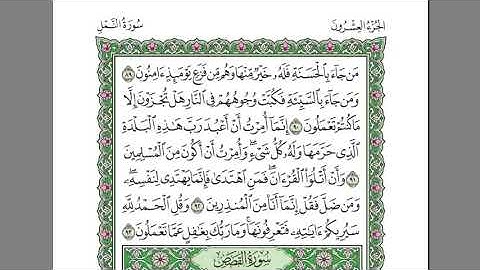 الجزء العشرون
سورة النمل
مَن جَآءَ بِٱلْحَسَنَةِ فَلَهُۥ خَيْرٌ مِّنْهَا وَهُم مِّن فَزَعٍ يَوْمَئِذٍ ءَامِنُونَ ٨٩
وَمَن جَآءَ بِٱلسَّيِّئَةِ فَكُبَّتْ وُجُوهُهُمْ فِى ٱلنَّارِ هَلْ تُجْزَوْنَ إِلَّا
مَا كُنتُمْ تَعْمَلُونَ ٩٠ إِنَّمَآ أُمِرْتُ أَنْ أَعْبُدَ رَبَّ هَٰذِهِ ٱلْبَلْدَةِ
ٱلَّذِى حَرَّمَهَا وَلَهُۥ كُلُّ شَىْءٍ وَأُمِرْتُ أَنْ أَكُونَ مِنَ ٱلْمُسْلِمِينَ
٩١ وَأَنْ أَتْلُوَا۟ ٱلْقُرْءَانَ فَمَنِ ٱهْتَدَىٰ فَإِنَّمَا يَهْتَدِى لِنَفْسِهِۦ
وَمَن ضَلَّ فَقُلْ إِنَّمَآ أَنَا۠ مِنَ ٱلْمُنذِرِينَ ٩٢ وَقُلِ ٱلْحَمْدُ لِلَّهِ
سَيُرِيكُمْ ءَايَٰتِهِۦ فَتَعْرِفُونَهَا وَمَا رَبُّكَ بِغَٰفِلٍ عَمَّا تَعْمَلُونَ ٩٣
سورة القصص